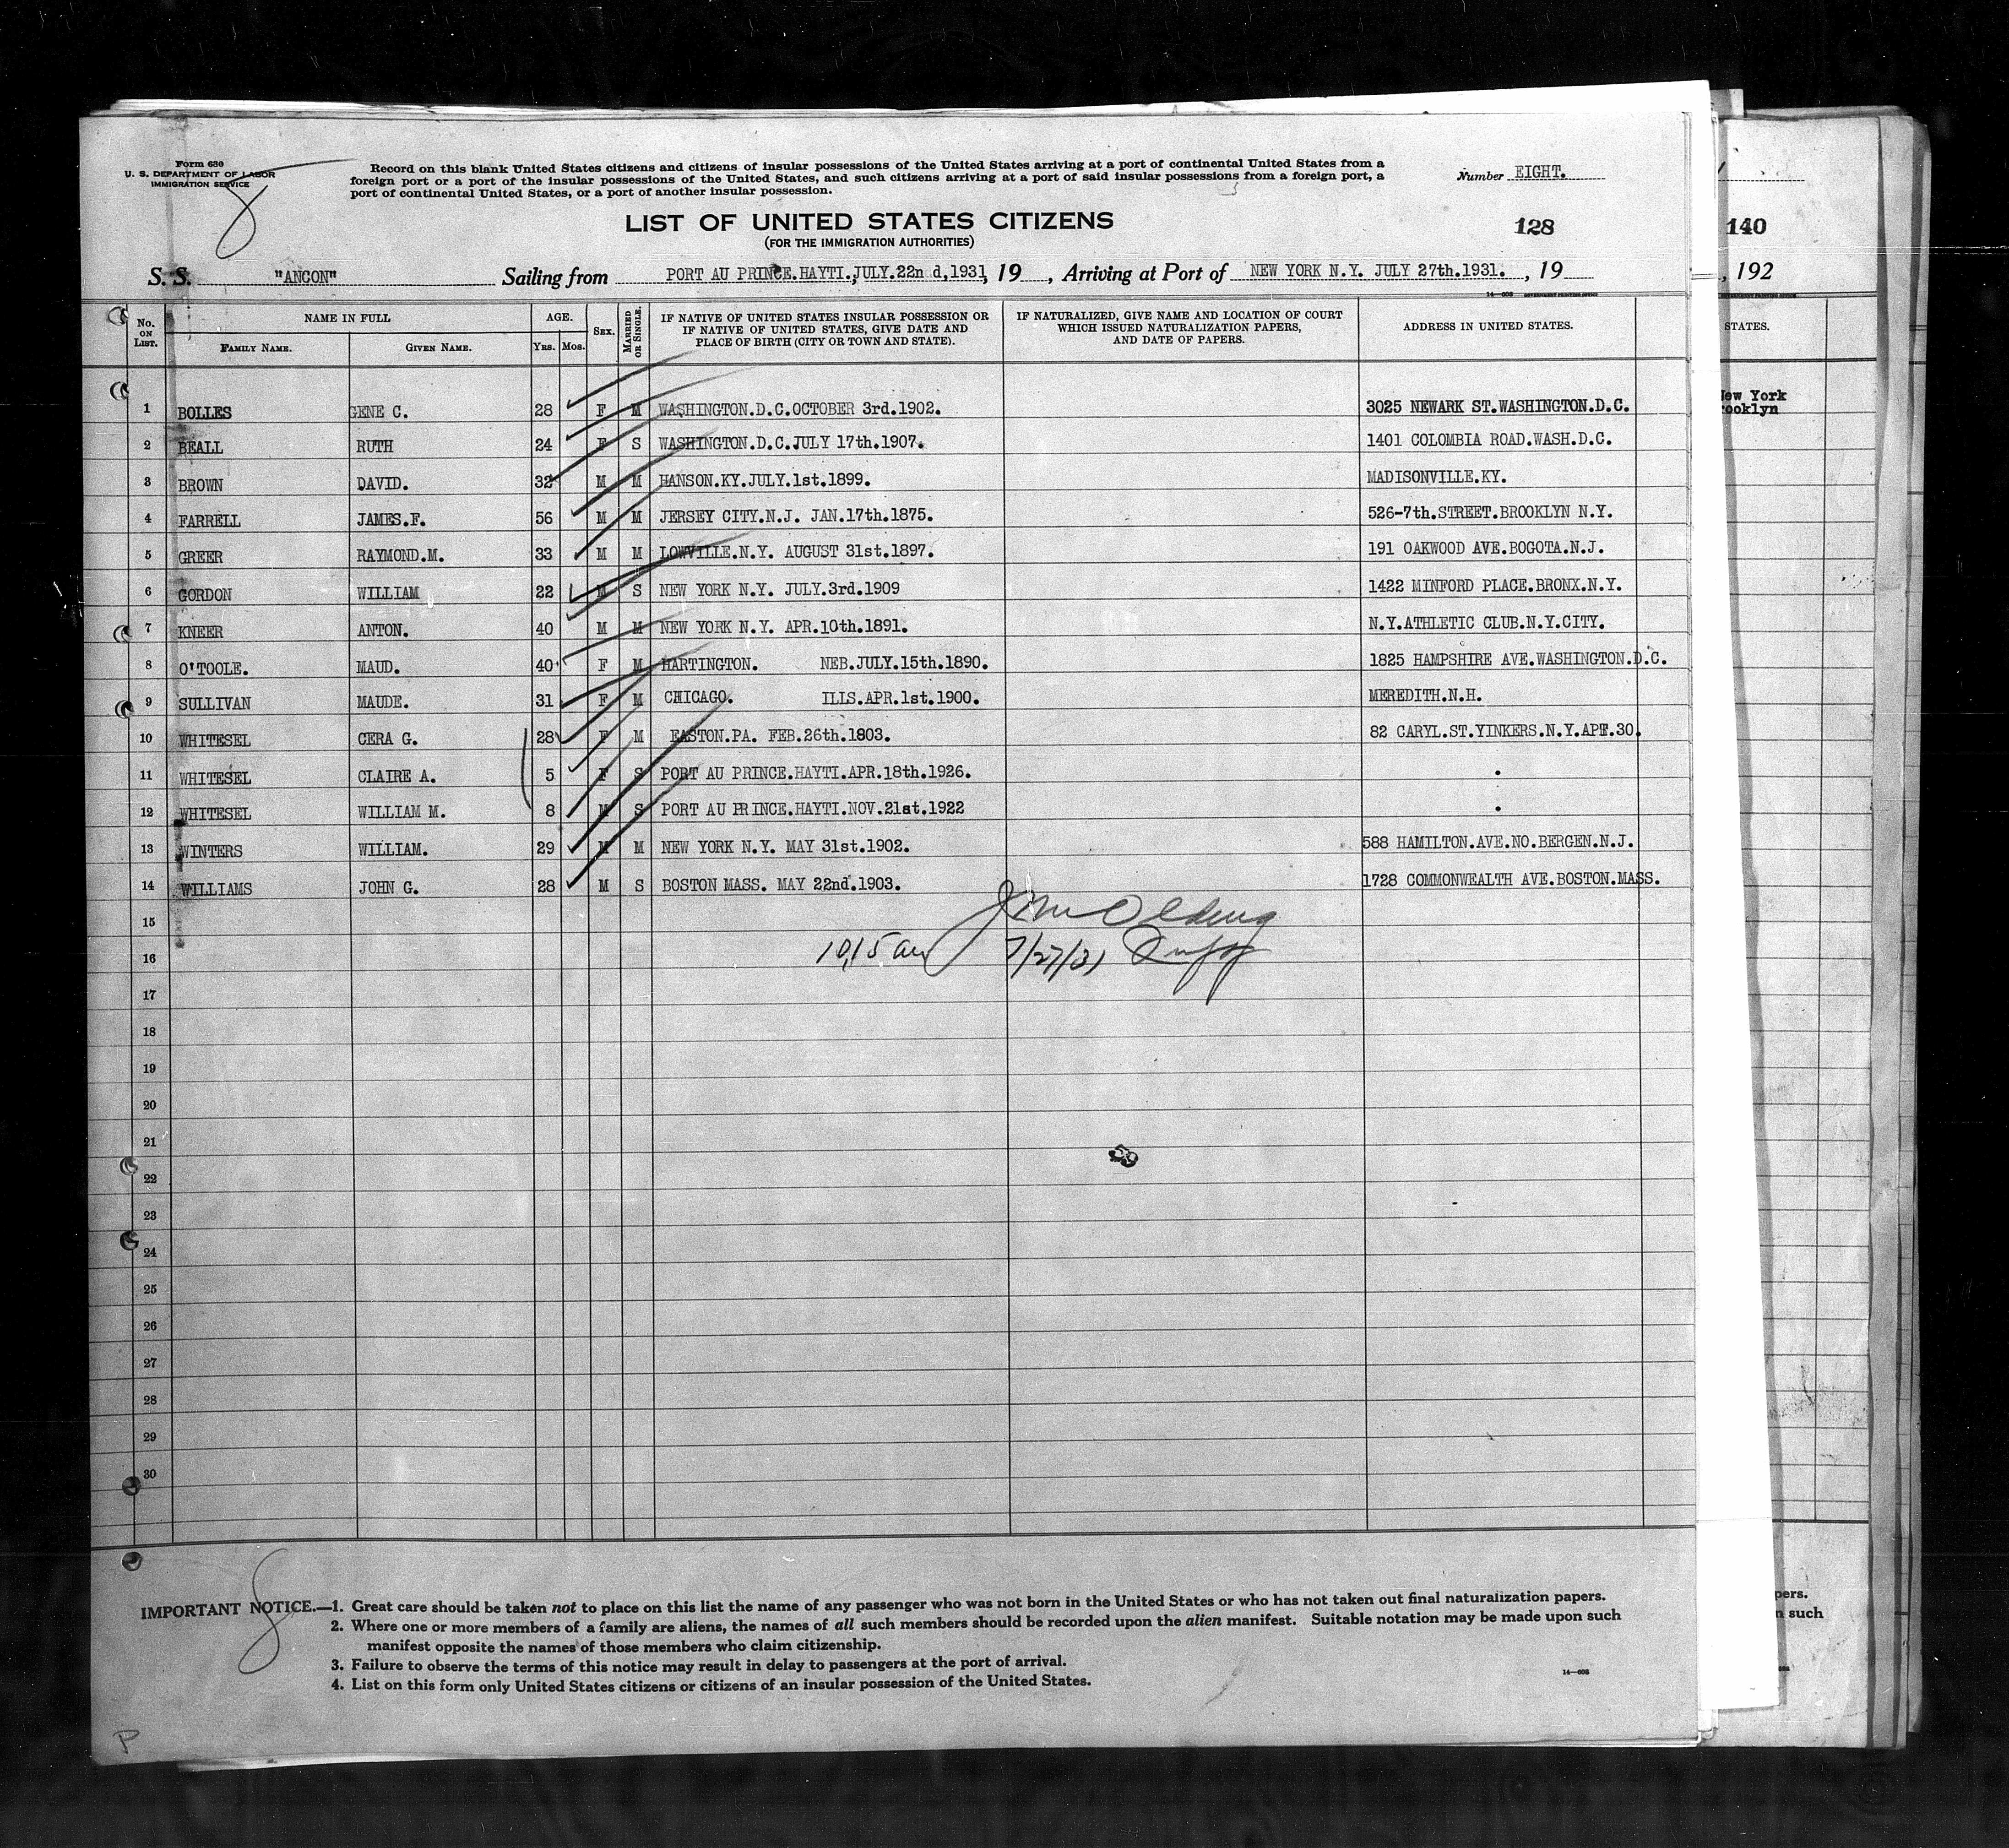 Form 630
U. S. DEPARTMENT OF LABOR
IMMIGRATION SERVICE
8
Record on this blank United States citizens and citizens of insular possessions of the United States arriving at a port of continental United States from a
foreign port or a port of the insular possessions of the United States, and such citizens arriving at a port of said insular possessions from a foreign port, a
port of continental United States, or a port of another insular possession.
Number EIGHT.
LIST OF UNITED STATES CITIZENS
(FOR THE IMMIGRATION AUTHORITIES)
128
140
S. S. "ANCON" Sailing from PORT AU PRINCE.HAYTI.,JULY.22nd,1931, 19 , Arriving at Port of NEW YORK N.Y. JULY 27th.1931. , 19
, 192
No. ON LIST. NAME IN FULL AGE. SEX. MARRIED OR SINGLE. IF NATIVE OF UNITED STATES INSULAR POSSESSION OR IF NATIVE OF UNITED STATES, GIVE DATE AND PLACE OF BIRTH (CITY OR TOWN AND STATE). IF NATURALIZED, GIVE NAME AND LOCATION OF COURT WHICH ISSUED NATURALIZATION PAPERS, AND DATE OF PAPERS. ADDRESS IN UNITED STATES.
STATES.
FAMILY NAME. GIVEN NAME. YRS. MOS.
1 BOLLES GENE C. 28 F M WASHINGTON.D.C.OCTOBER 3rd.1902. 3025 NEWARK ST.WASHINGTON.D.C.
New York
rooklyn
2 BEALL RUTH 24 F S WASHINGTON.D.C.JULY 17th.1907. 1401 COLOMBIA ROAD.WASH.D.C.
3 BROWN DAVID. 32 M M HANSON.KY.JULY.1st.1899. MADISONVILLE.KY.
4 FARRELL JAMES.F. 56 M M JERSEY CITY.N.J. JAN.17th.1875. 526-7th.STREET.BROOKLYN N.Y.
5 GREER RAYMOND.M. 33 M M LOWVILLE.N.Y. AUGUST 31st.1897. 191 OAKWOOD AVE.BOGOTA.N.J.
6 GORDON WILLIAM 22 M S NEW YORK N.Y. JULY.3rd.1909 1422 MINFORD PLACE.BRONX.N.Y.
7 KNEER ANTON. 40 M M NEW YORK N.Y. APR.10th.1891. N.Y.ATHLETIC CLUB.N.Y.CITY.
8 O'TOOLE. MAUD. 40 F M HARTINGTON. NEB.JULY.15th.1890. 1825 HAMPSHIRE AVE.WASHINGTON.D.C.
9 SULLIVAN MAUDE. 31 F M CHICAGO. ILLS.APR.1st.1900. MEREDITH.N.H.
10 WHITESEL CERA G. 28 F M EASTON.PA. FEB.26th.1803. 82 CARYL.ST.YINKERS.N.Y.APT.30.
11 WHITESEL CLAIRE A. 5 F S PORT AU PRINCE.HAYTI.APR.18th.1926. "
12 WHITESEL WILLIAM M. 8 M S PORT AU PRINCE.HAYTI.NOV.21st.1922 "
13 WINTERS WILLIAM. 29 M M NEW YORK N.Y. MAY 31st.1902. 588 HAMILTON.AVE.NO.BERGEN.N.J.
14 WILLIAMS JOHN G. 28 M S BOSTON MASS. MAY 22nd.1903. 1728 COMMONWEALTH AVE.BOSTON.MASS.
15
16 10,15 am 7/27/31
17
18
19
20
21
22
23
24
25
26
27
28
29
30
8
IMPORTANT NOTICE.—1. Great care should be taken not to place on this list the name of any passenger who was not born in the United States or who has not taken out final naturalization papers.
2. Where one or more members of a family are aliens, the names of all such members should be recorded upon the alien manifest. Suitable notation may be made upon such
manifest opposite the names of those members who claim citizenship.
3. Failure to observe the terms of this notice may result in delay to passengers at the port of arrival.
4. List on this form only United States citizens or citizens of an insular possession of the United States.
pers.
n such
P